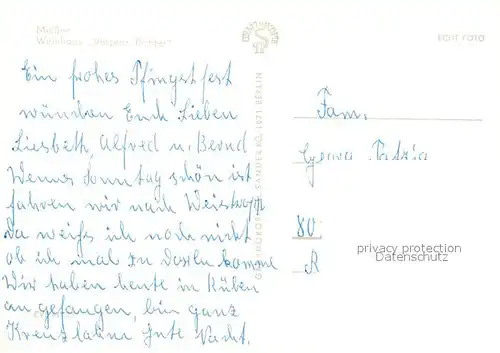 Meißen
Weinhaus „Vincenz Richter“
ECHT FOTO
Ein frohes Pfingstfest
wünschen Euch Lieben
Liesbeth, Alfred u. Bernd
Wenns Sonntag schön ist
fahren wir nach
da weiß ich noch nicht
ob ich mal zu komme
Wir haben heute in Rüben
angefangen, bin ganz
Kreuzlahm Gute Nacht.
Fam.
80
privacy protection
Datenschutz